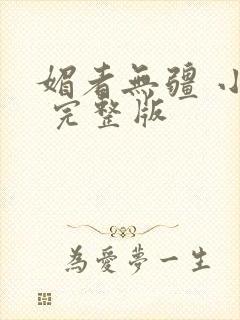 媚者無疆 小
完整版
為愛夢一生